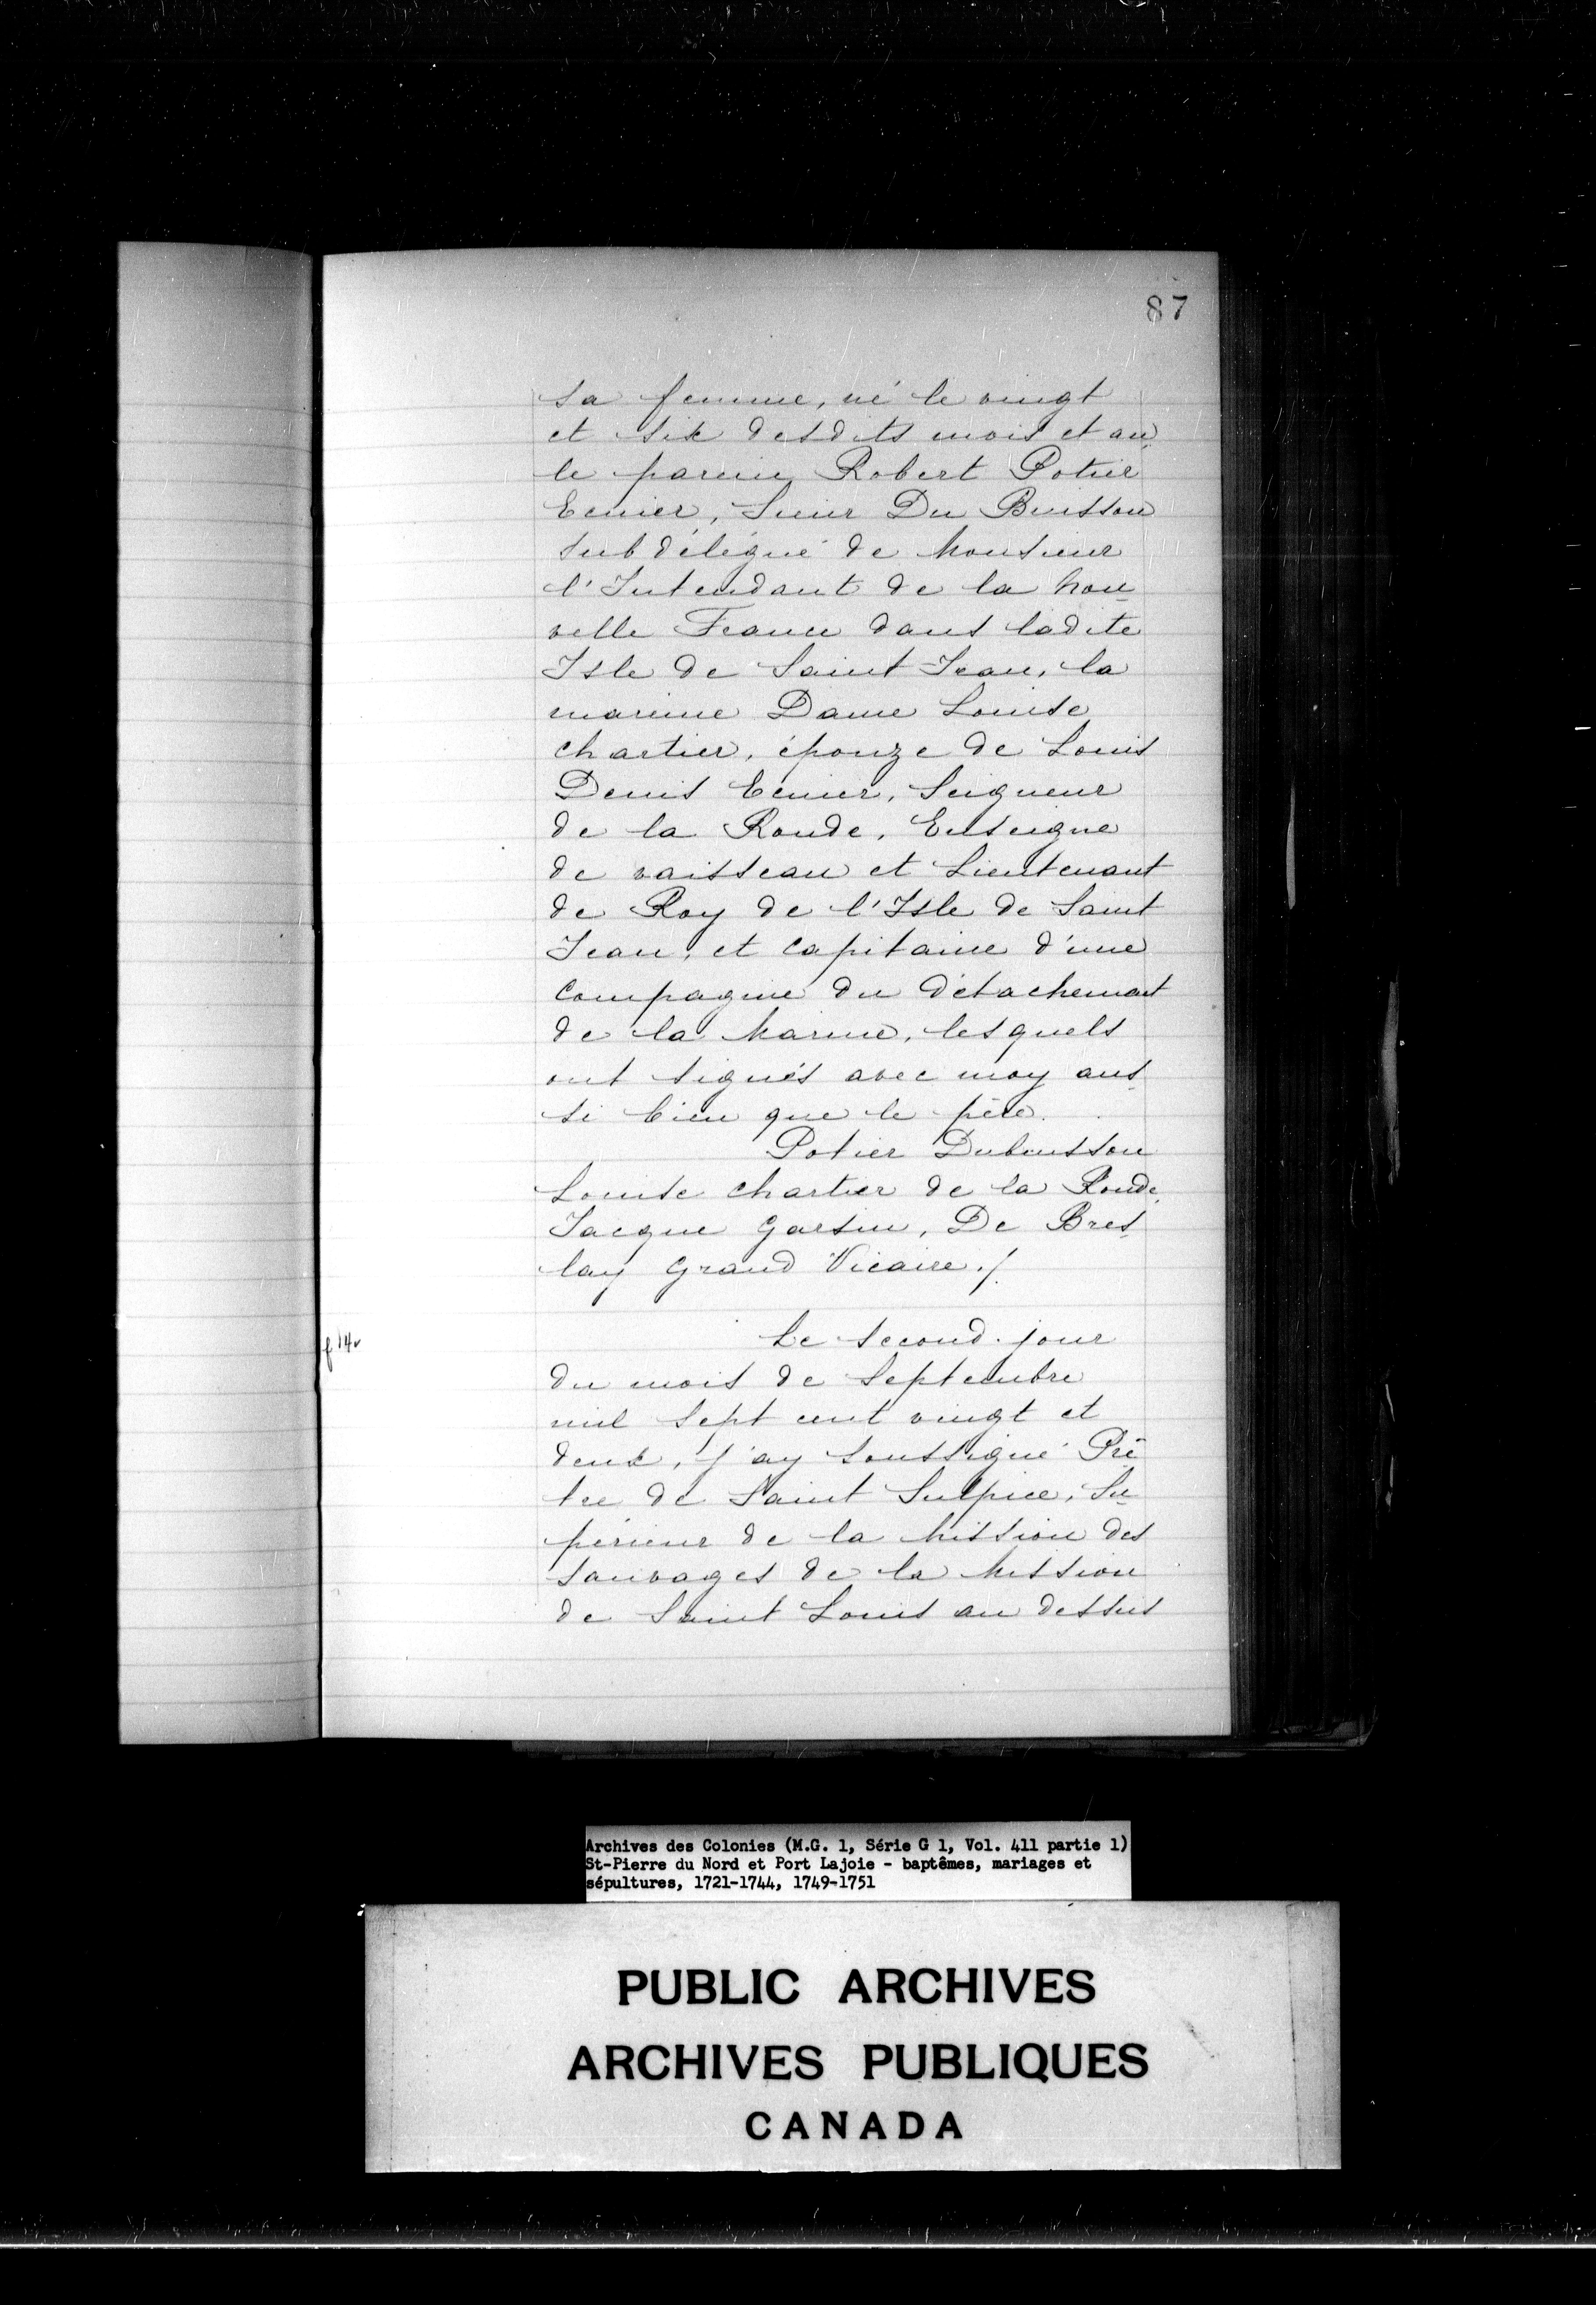 87
sa femme, né le vingt
et six desdits mois et an,
le parein Robert Potier
Ecuier, Sieur Du Buisson
subdélégué de Monsieur
l'Intendant de la Nou-
velle France dans ladite
Isle de Saint Jean, la
mareine Dame Louise
Chartier, épouze de Louis
Denis Ecuier, Seigneur
de la Ronde, Enseigne
de vaisseau et Lieutenant
de Roy de l'Isle de Saint
Jean, et Capitaine d'une
Compagnie du Détachemant
de la Marine, lesquels
ont signés avec moy aus-
si bien que le père.
Potier Dubuisson
Louise Chartier de la Ronde,
Jacque Garsin, De Bres-
lay Grand Vicaire ./.
f 14v
Le second jour
du mois de Septembre
mil sept cent vingt et
deux, j'ay soussigné Prê-
tre de Saint Sulpice, Su-
périeur de la Mission des
Sauvages de la Mission
de Saint Louis au dessus
Archives des Colonies (M.G. 1, Série G 1, Vol. 411 partie 1)
St-Pierre du Nord et Port Lajoie - baptêmes, mariages et
sépultures, 1721-1744, 1749-1751
PUBLIC ARCHIVES
ARCHIVES PUBLIQUES
CANADA